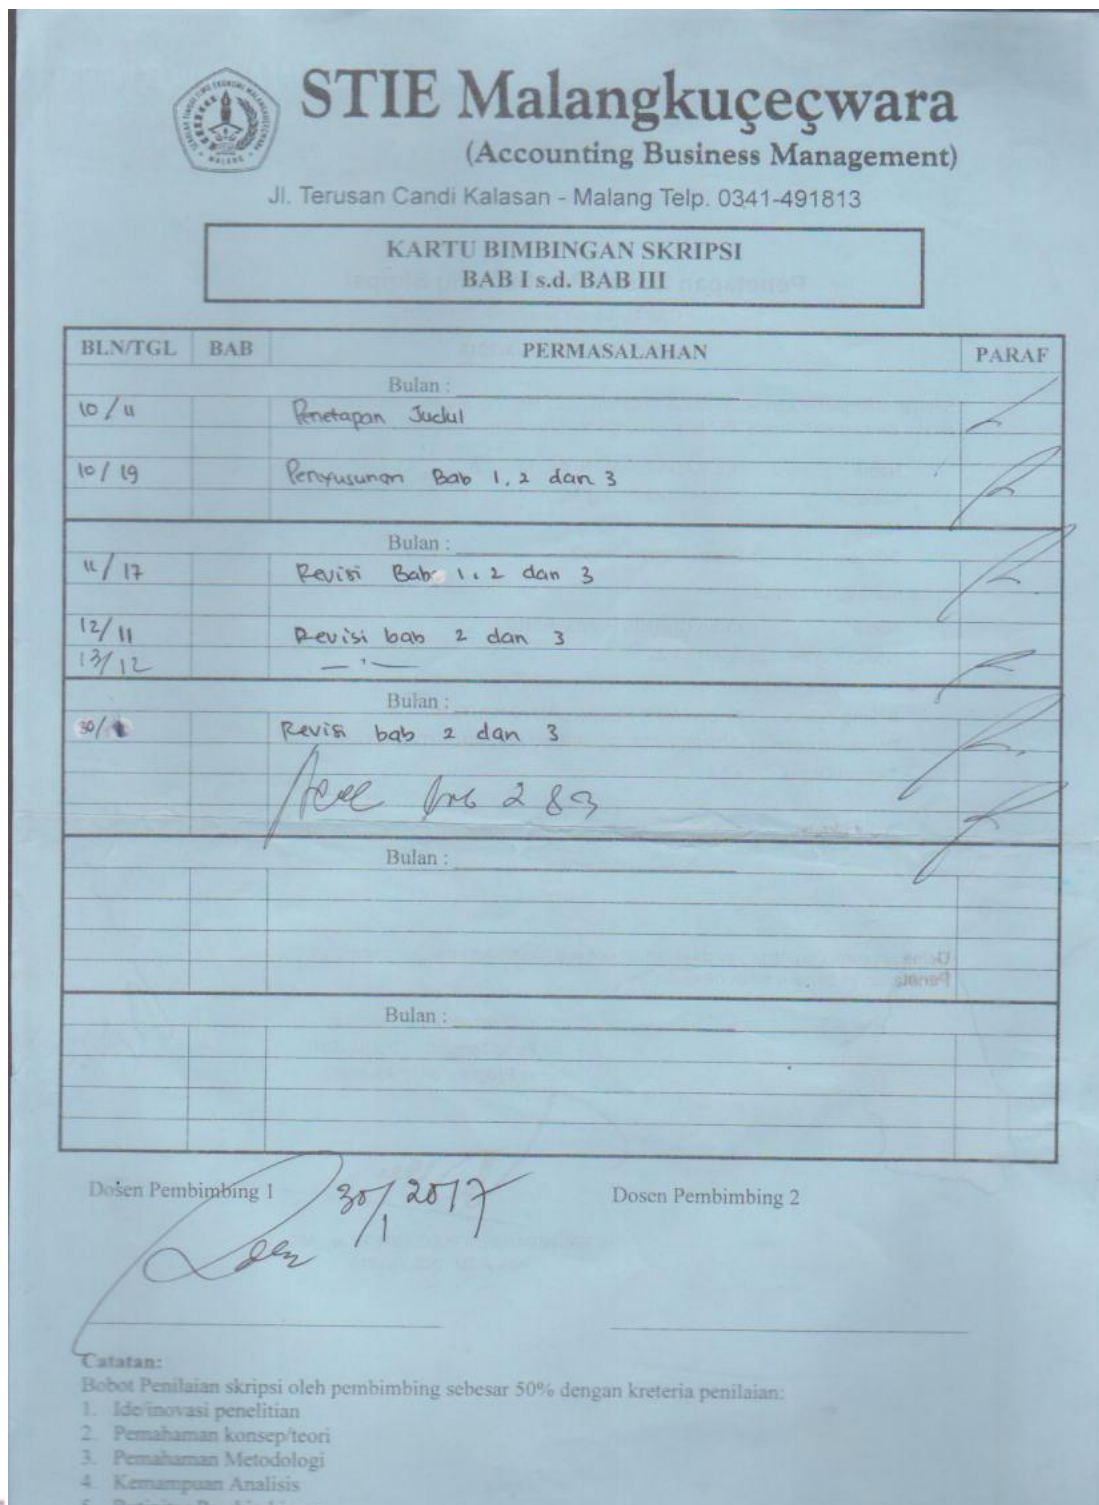 STIE Malangkuçeçwara
(Accounting Business Management)
Jl. Terusan Candi Kalasan - Malang Telp. 0341-491813
KARTU BIMBINGAN SKRIPSI
BAB I s.d. BAB III
BLN/TGL BAB PERMASALAHAN PARAF
Bulan :
10 / 11 Penetapan Judul
10 / 19 Penyusunan Bab 1, 2 dan 3
Bulan :
11 / 17 Revisi Bab 1, 2 dan 3
12/ 11 Revisi bab 2 dan 3
13/12 — " —
Bulan :
30/ Revisi bab 2 dan 3
2 & 3
Bulan :
Bulan :
Dosen Pembimbing 1 30/1 2017 Dosen Pembimbing 2
Catatan:
Bobot Penilaian skripsi oleh pembimbing sebesar 50% dengan kreteria penilaian:
1. Ide/inovasi penelitian
2. Pemahaman konsep/teori
3. Pemahaman Metodologi
4. Kemampuan Analisis